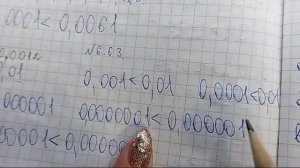 0001<0,0061
0,001<
№6.63
0,01
0,001<0,01 0,0001<0,01
000001 00000001<0,000001
00001<0,00000